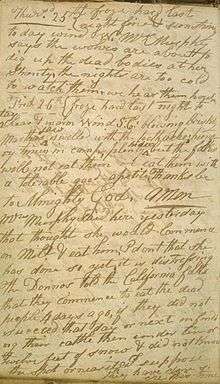 Thurs'd 25th froze hard last
night fine & sunshiny
to day wind W. Mrs Murphy
says the wolves are about to
dig up the dead bodies at her
Shanty, the nights are too cold
to watch them, we hear them howl
Frid 26th froze hard last night to
day clear & warm Wind S.E. blowing briskly
Marthas jaw swelled with the toothache; hungry
times in camp, plenty hides but the folks
will not eat them we eat them with
a tolerable good apetite. Thanks be
to Almighty God. Amen
Mrs Murphy said here yesterday
that thought she would commence
on Milt. & eat him. I dont that she
has done so yet, it is distressing
The Donnos told the California folks
that they commence to eat the dead
people 4 days ago, if they did not
succeed that day or next in finding
their cattle then under ten or
twelve feet of snow & did not know
the spot or near it, I suppose
they have done so